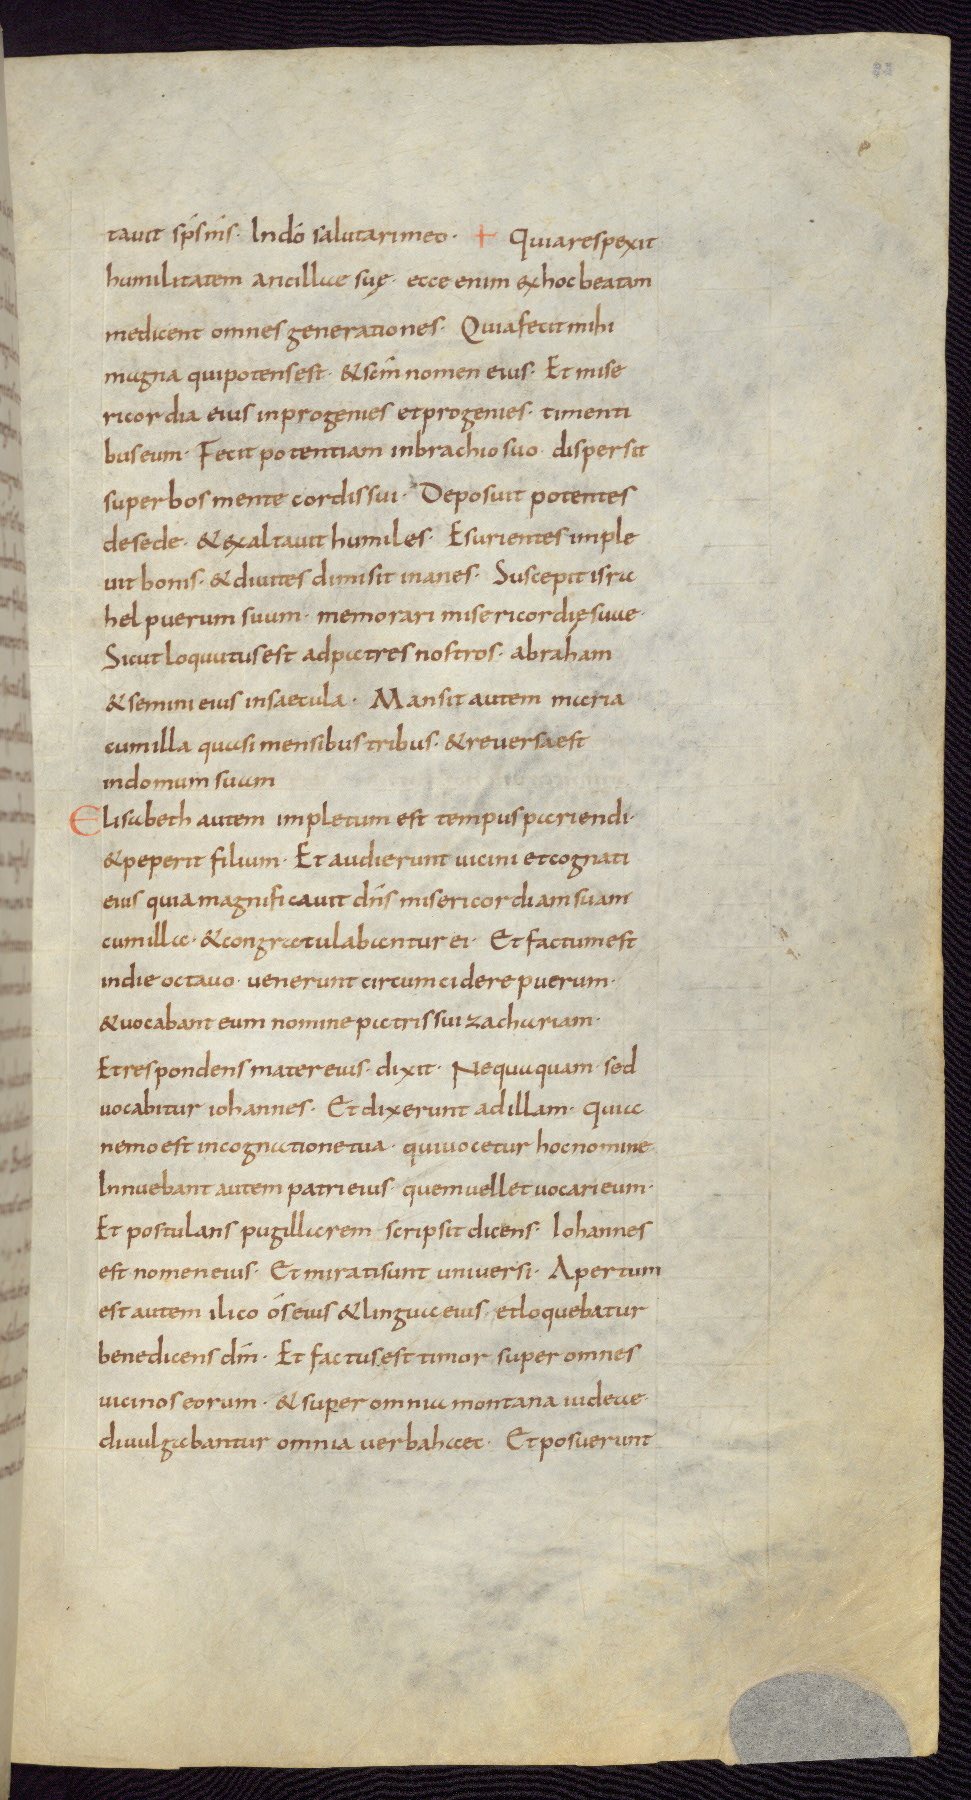 tavit sp̄s m̄s· In dō salutari meo· + Quia respexit
humilitatem ancillae suę· ecce enim ex hoc beatam
me dicent omnes generationes· Quia fecit mihi
magna qui potens est· & sc̄m nomen eius· Et mise
ricordia eius in progenies et progenies· timenti
bus eum· Fecit potentiam in brachio suo· dispersit
superbos mente cordis sui· Deposuit potentes
de sede· & exaltavit humiles· Esurientes imple
vit bonis· & divites dimisit inanes· Suscepit isra
hel puerum suum· memorari misericordię suae·
Sicut loquutus est ad patres nostros· abraham
& semini eius in saecula· Mansit autem maria
cum illa quasi mensibus tribus· & reversa est
in domum suam
Elisabeth autem impletum est tempus pariendi·
& peperit filium· Et audierunt vicini et cognati
eius quia magnificavit dn̄s misericordiam suam
cum illa· & congratulabantur ei· Et factum est
in die octavo· venerunt circumcidere puerum·
& vocabant eum nomine patris sui zachariam·
Et respondens mater eius· dixit· Nequaquam· sed
vocabitur iohannes· Et dixerunt ad illam· quia
nemo est in cognatione tua· qui vocetur hoc nomine
Innuebant autem patri eius· quem vellet vocari eum·
Et postulans pugillarem scripsit dicens· Iohannes
est nomen eius· Et mirati sunt universi· Apertum
est autem ilico ós eius & lingua eius· et loquebatur
benedicens dm̄· Et factus est timor super omnes
vicinos eorum· & super omnia montana iudeae·
divulgabantur omnia verba haec· Et posuerunt